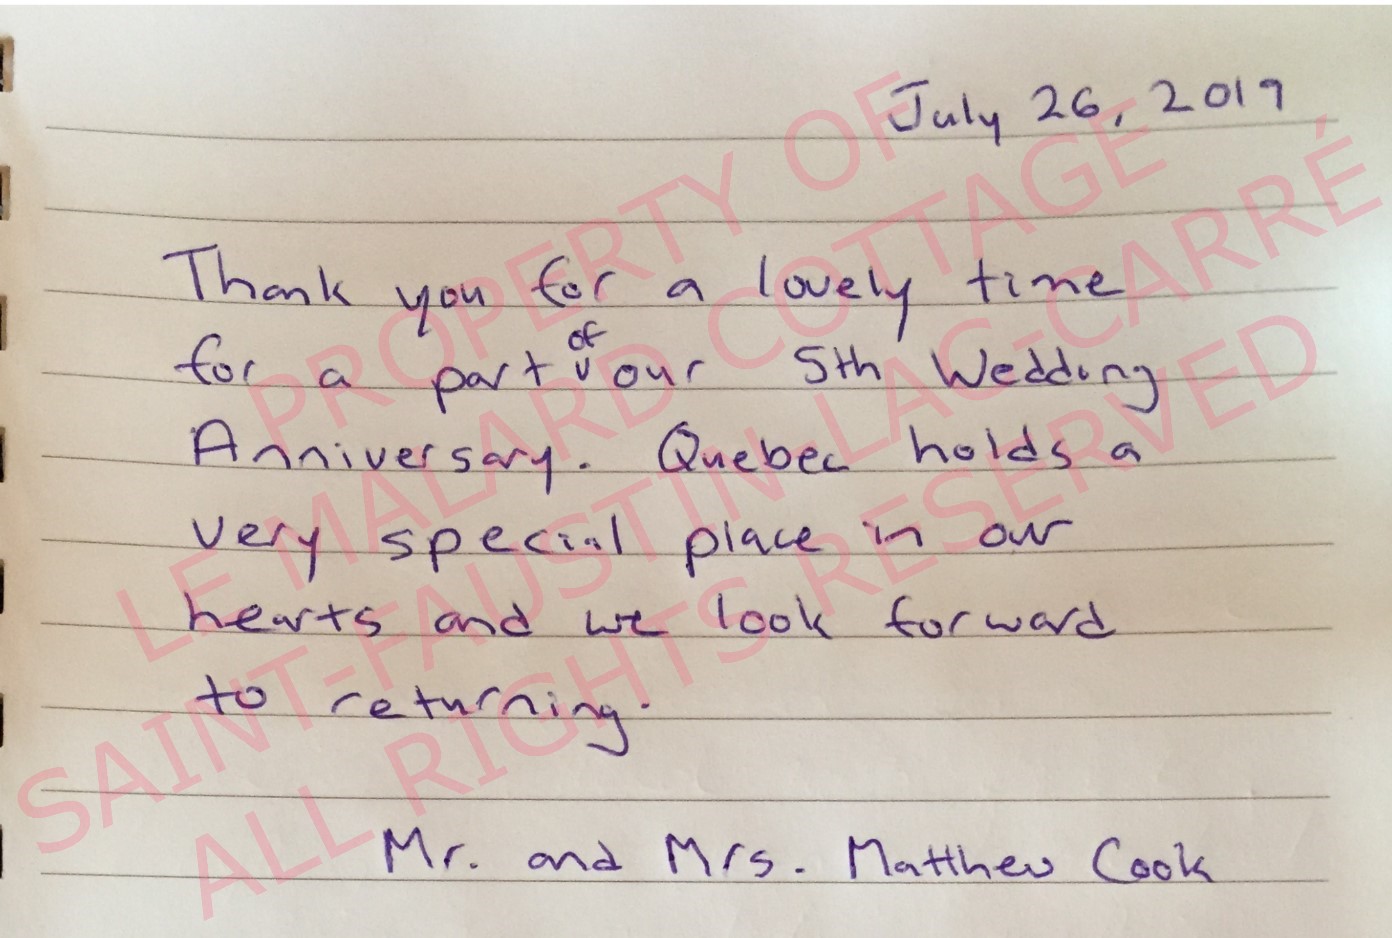 July 26, 2019
Thank you for a lovely time
for a part of our 5th Wedding
Anniversary. Quebec holds a
very special place in our
hearts and we look forward
to returning.
Mr. and Mrs. Matthew Cook
PROPERTY OF
LE MALARD COTTAGE
SAINT-FAUSTIN-LAC-CARRÉ
ALL RIGHTS RESERVED